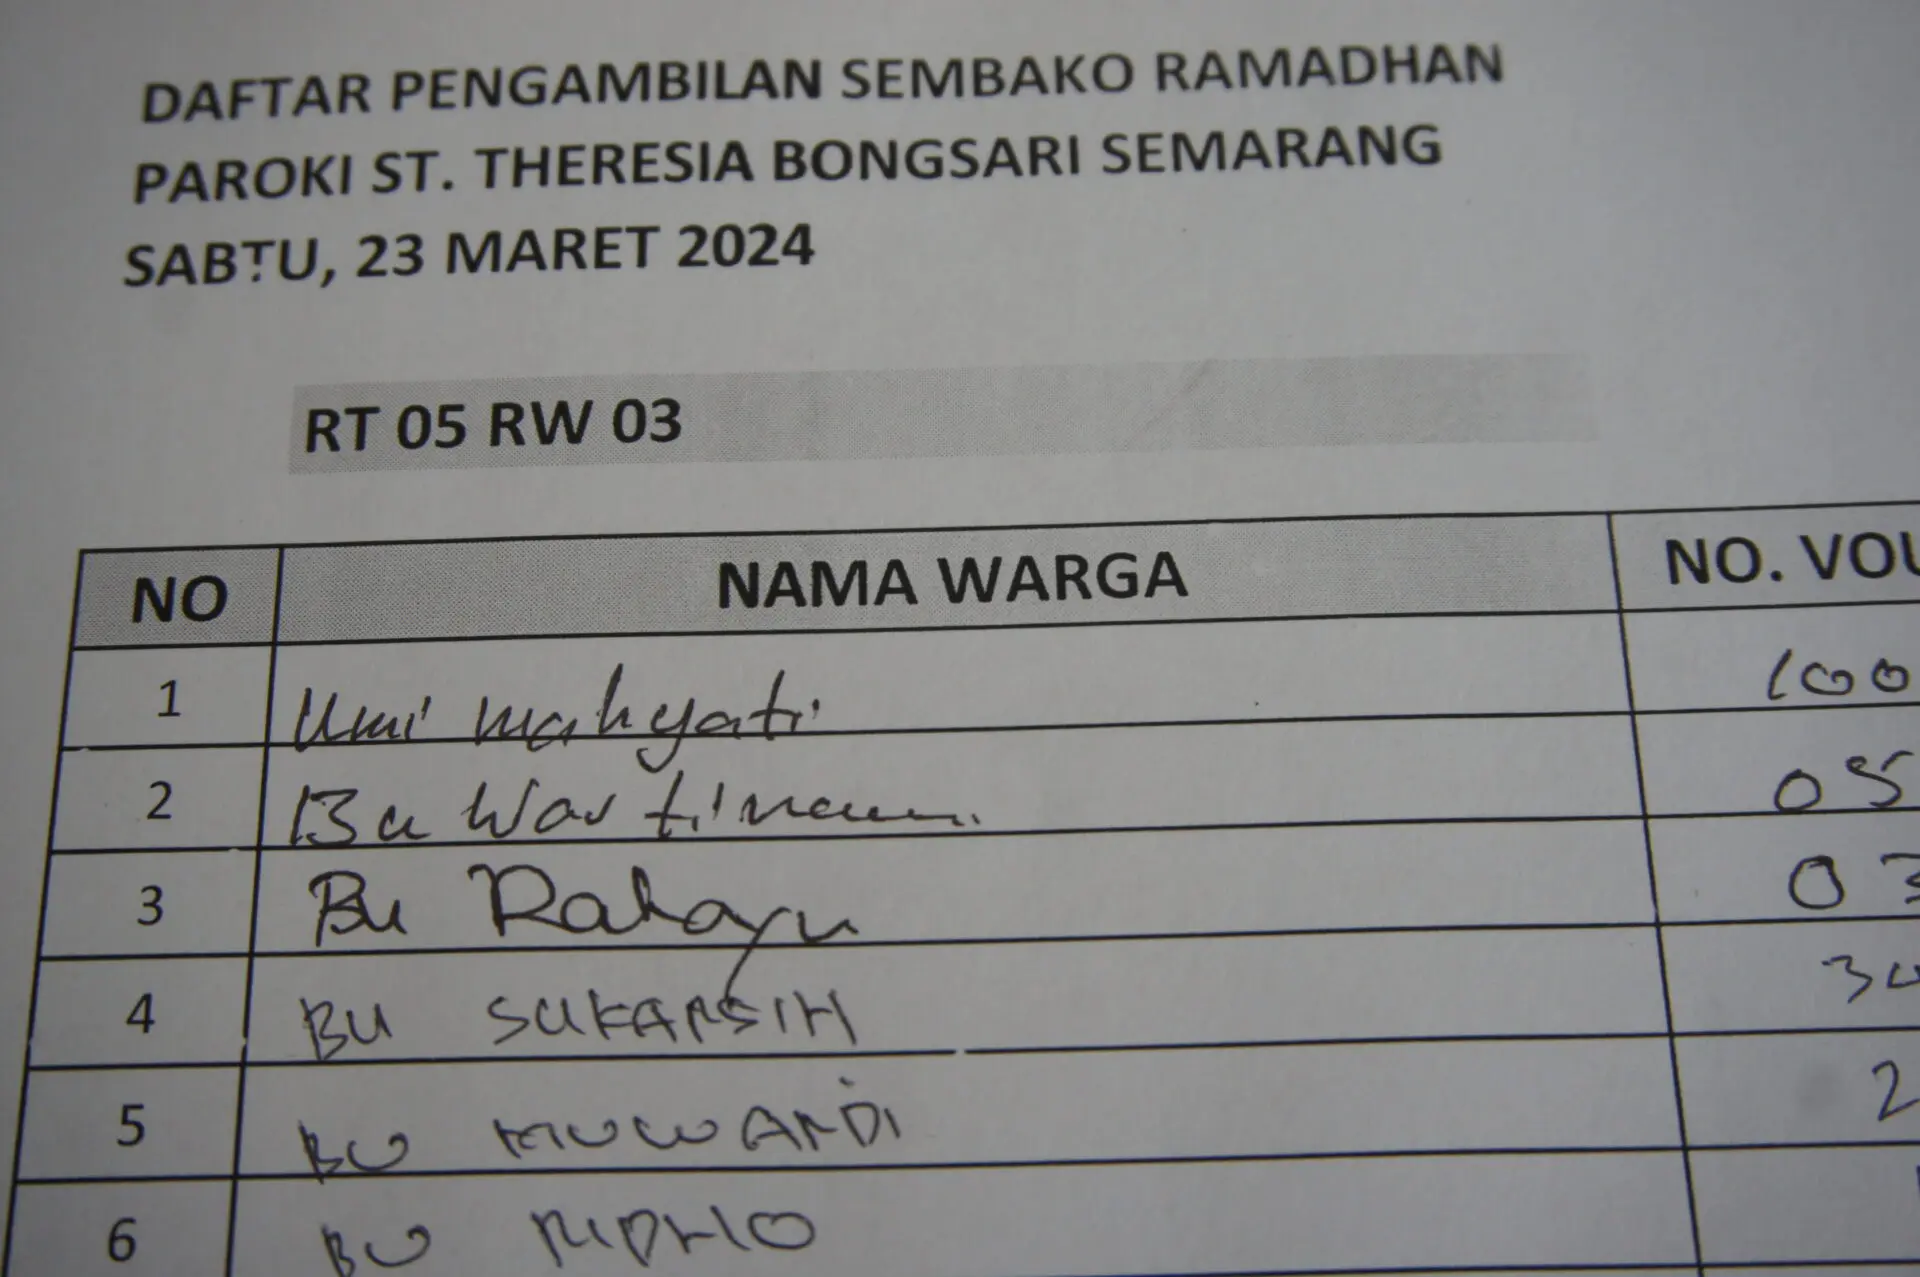 DAFTAR PENGAMBILAN SEMBAKO RAMADHAN
PAROKI ST. THERESIA BONGSARI SEMARANG
SABTU, 23 MARET 2024
RT 05 RW 03
NO NAMA WARGA NO. VOU
1 Umi Mahyati 100
2 Bu Wartinem. 05
3 Bu Rahayu 03
4 BU SUKARSIH 34
5 BU MUWARDI 2
6 BU RIDHO